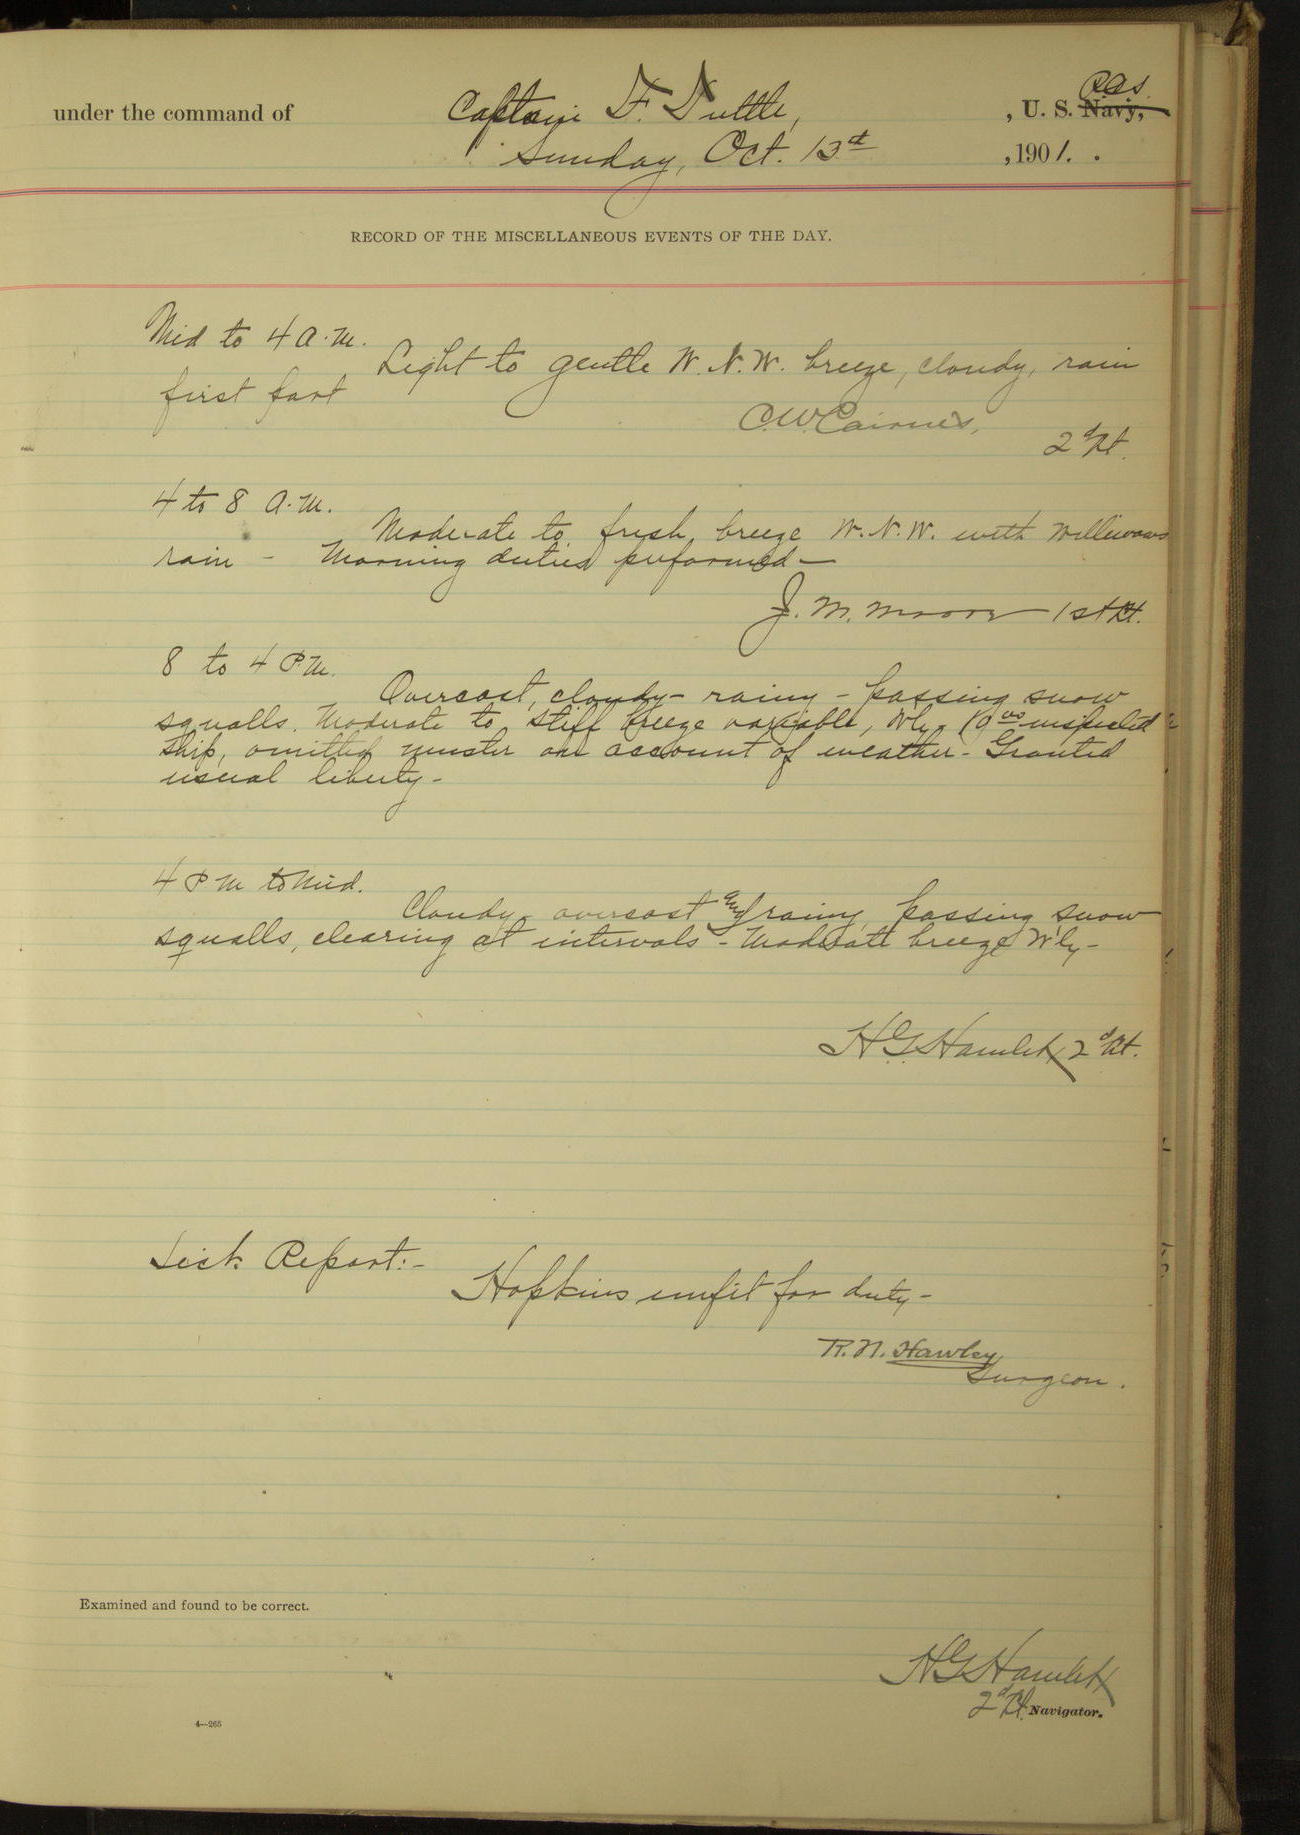 under the command of Captain F. Tuttle, , U. S. Navy, R.C.S.
Sunday, Oct. 13th , 1901. .
RECORD OF THE MISCELLANEOUS EVENTS OF THE DAY.
Mid to 4 a.m.
Light to gentle W.N.W. breeze, cloudy, rain
first part
C.W. Cairnes,
2d Lt.
4 to 8 a.m.
Moderate to fresh breeze W.N.W. with williwaws
rain - Morning duties performed -
J. M. Moore 1st Lt.
8 to 4 P.M.
Overcast, cloudy - rainy - passing snow
squalls. Moderate to stiff breeze variable, Wly. inspected
ship, omitted muster on account of weather - Granted
usual liberty -
4 P M to Mid.
Cloudy overcast and rainy, passing snow
squalls, clearing at intervals - Moderate breeze W'ly -
H G Hamlet 2d Lt.
Sick Report:-
Hopkins unfit for duty -
R. N. Hawley
Surgeon.
Examined and found to be correct.
H G Hamlet
2d Lt. Navigator.
4—265